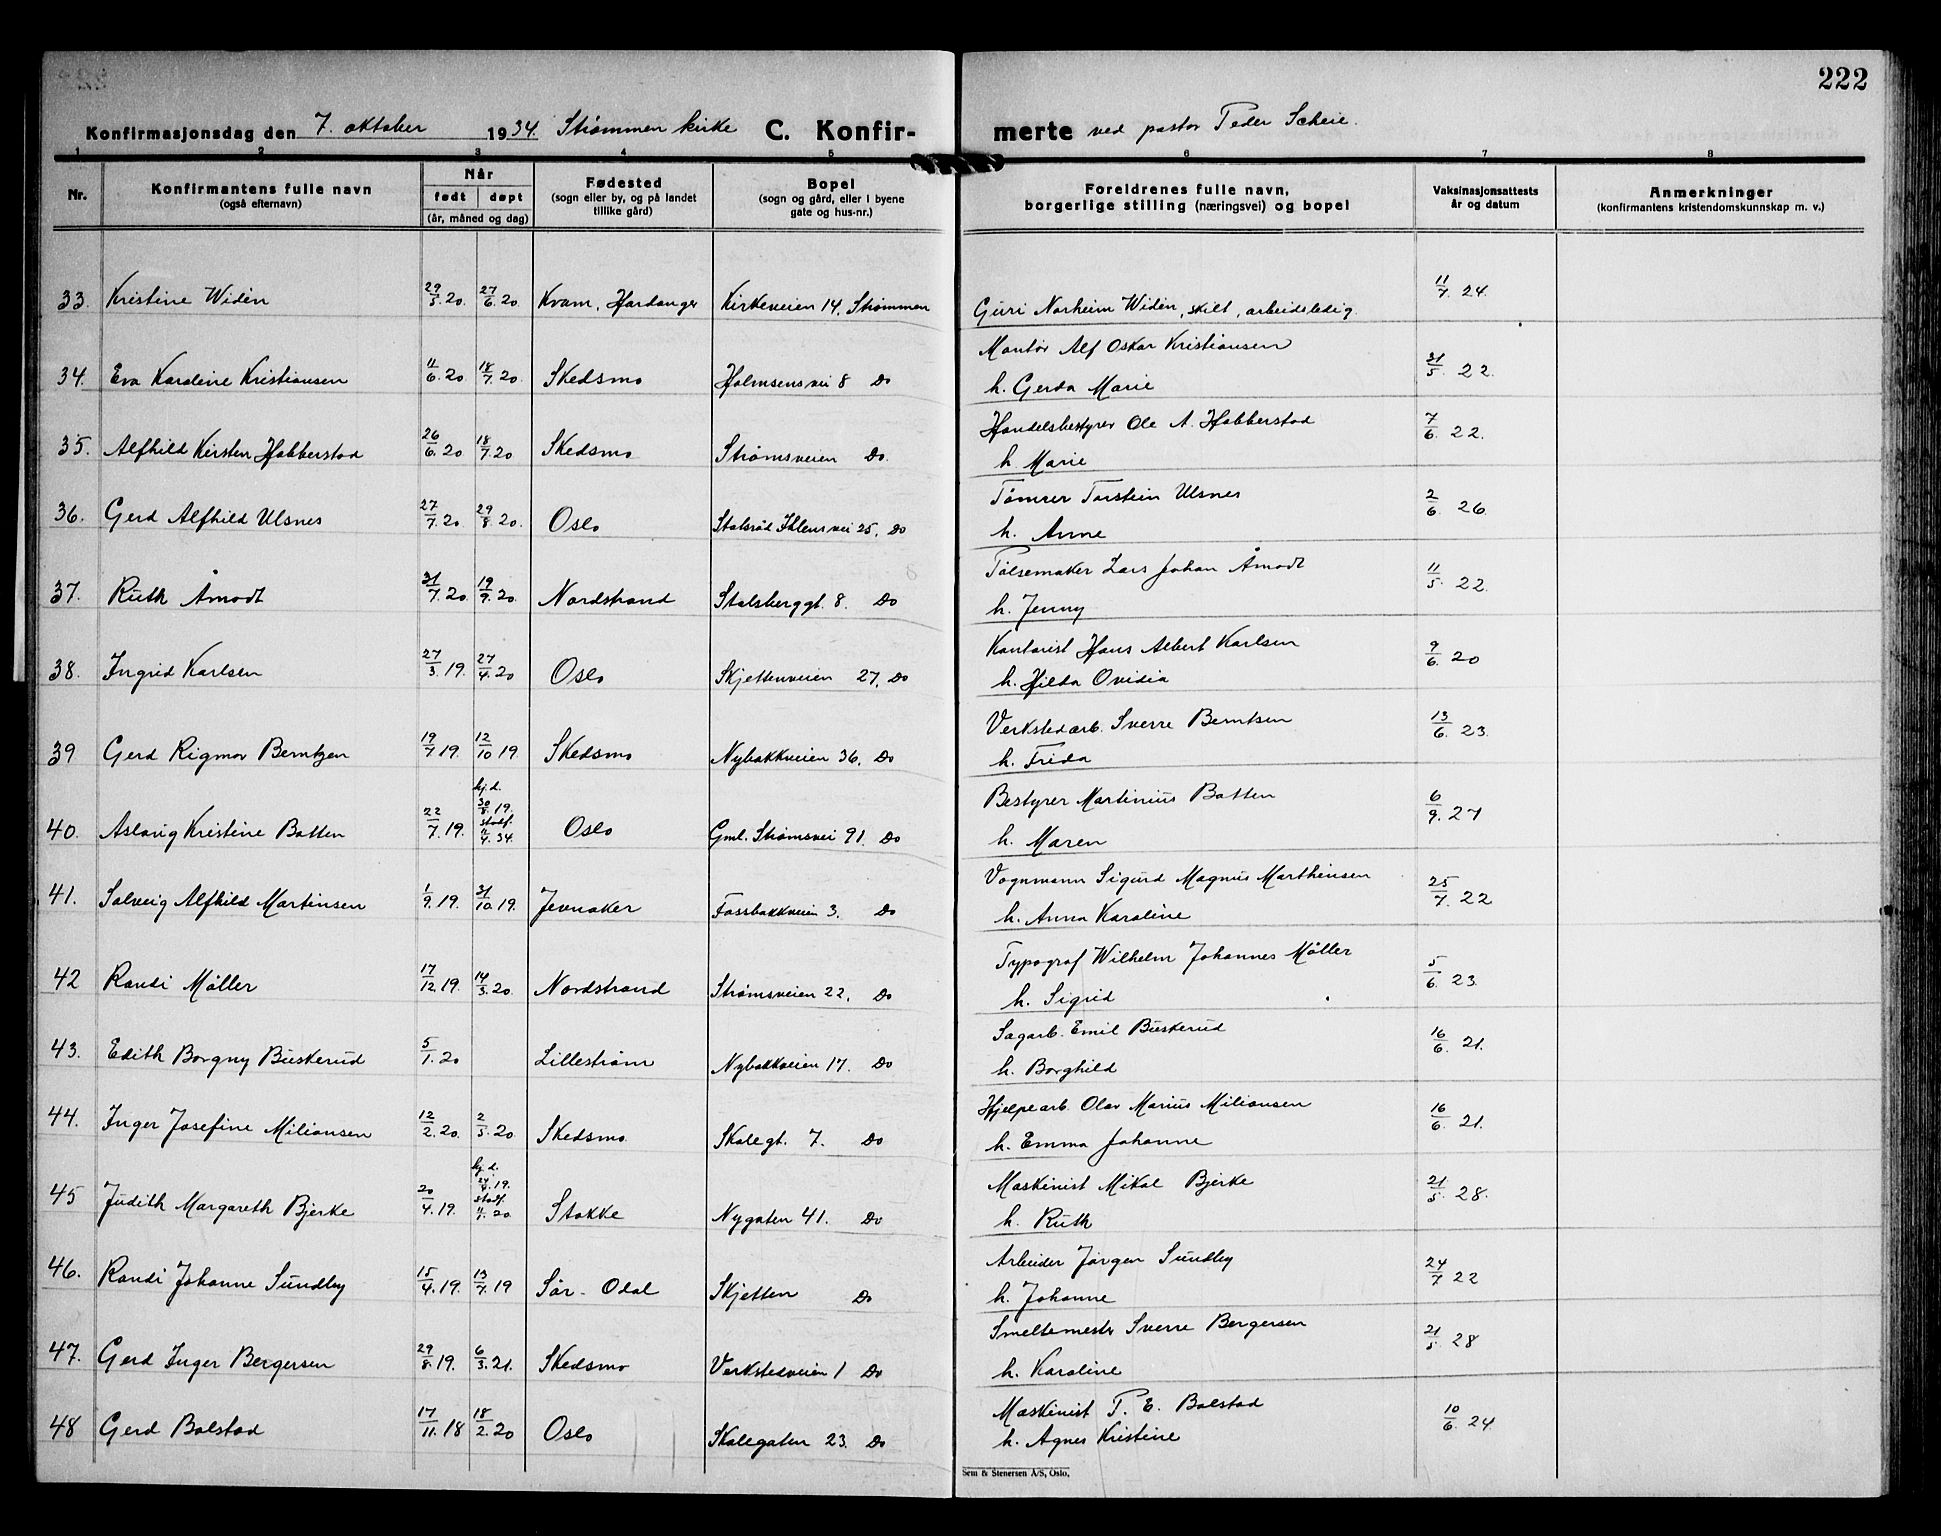 222
Konfirmasjonsdag den 7. oktober 1934. Strømmen kirke C. Konfir-merte ved pastor Peder Scheie.
1 2 3 4 5 6 7 8
Nr. Konfirmantens fulle navn (også efternavn) Når født døpt (år, måned og dag) Fødested (sogn eller by, og på landet tillike gård) Bopel (sogn og gård, eller i byene gate og hus-nr.) Foreldrenes fulle navn, borgerlige stilling (næringsvei) og bopel Vaksinasjonsattests år og datum Anmerkninger (konfirmantens kristendomskunnskap m. v.)
33. Kristine Widén 29/3. 20. 27/6. 20 Kvam, Hardanger Kirkeveien 14. Strømmen Guri Norheim Widén, skilt, arbeidsledig. 11/7. 24.
34. Eva Karoline Kristiansen 11/6. 20 18/7. 20. Skedsmo Holmsensvei 8 Do Montør Alf Oskar Kristiansen 31/5. 22.
h. Gerda Marie
35. Alfhild Kirsten Habberstad 26/6. 20 18/7. 20 Skedsmo Strømsveien Do. Handelsbestyrer Ole A. Habberstad 7/6. 22.
h Marie
36. Gerd Alfhild Ulsnes 27/7. 20. 29/8. 20. Oslo Ihlensvei 25. Do Tømrer Torstein Ulsnes 2/6. 26.
h. Anne
37. Ruth Åmodt 31/7. 20. 19/9. 20. Nordstrand Stalsberggt. 8. Do Pølsemaker Lars Johan Åmodt 11/5. 22.
h. Jenny
38. Ingrid Karlsen 27/3. 19. 27/4. 20 Oslo Skjettenveien 27. Do Kontorist Hans Albert Karlsen 9/6. 20
h. Hilda Ovidia
39 Gerd Rigmor Berntzen 19/7 19. 12/10 19. Skedsmo Nybakkveien 36. Do Verkstedarb. Sverre Berntsen 13/6. 23.
h. Frida
40. Aslaug Kristine Batten 22/7. 19. hj. d. 30/8. 19. stadf. 11/4. 34. Oslo Gml. Strømsvei 91. Do Bestyrer Martinius Batten 6/9. 27
h. Maren
41. Solveig Alfhild Martinsen 1/9. 19. 31/10. 19. Jevnaker Fossbakkveien 3. Do Vognmann Sigurd Magnus Marthinsen 25/7. 22
h. Anna Karoline
42 Randi Møller 17/12. 19. 14/3. 20. Nordstrand Strømsveien 22. Do Typograf Wilhelm Johannes Møller 5/6. 23.
h. Sigrid
43. Edith Borgny Buskerud 5/1. 20 Lillestrøm Nybakkveien 17. Do Sagarb. Emil Buskerud 16/6. 21.
h. Borghild
44. Inger Josefine Miliansen 12/2. 20. 2/5. 20 Skedsmo. Skolegt. 7. Do Hjelpearb. Olav Marius Miliansen 16/6. 21.
h. Emma Johanne
45 Judith Margareth Bjerke 20/4. 19. hj. d. 19. stadf. 20 Stokke Nygaten 41. Do Maskinist Mikal Bjerke 21/5. 28.
h. Ruth
46. Randi Johanne Sundby 15/4. 19. 13/7. 19 Sør-Odal Skjetten Do Arbeider Jørgen Sundby 24/7 22
h. Johanne
47. Gerd Inger Bergersen 29/8. 19. 6/3. 21. Skedsmo Verkstedveien 1 Do Smeltemester Sverre Bergersen 21/5. 28
h. Karoline
48 Gerd Bolstad 17/11. 18 18/2. 20 Oslo Skolegaten 23. Do Maskinist P. E. Bolstad 10/6. 24.
h. Agnes Kristine
Sem & Stenersen A/S, Oslo.